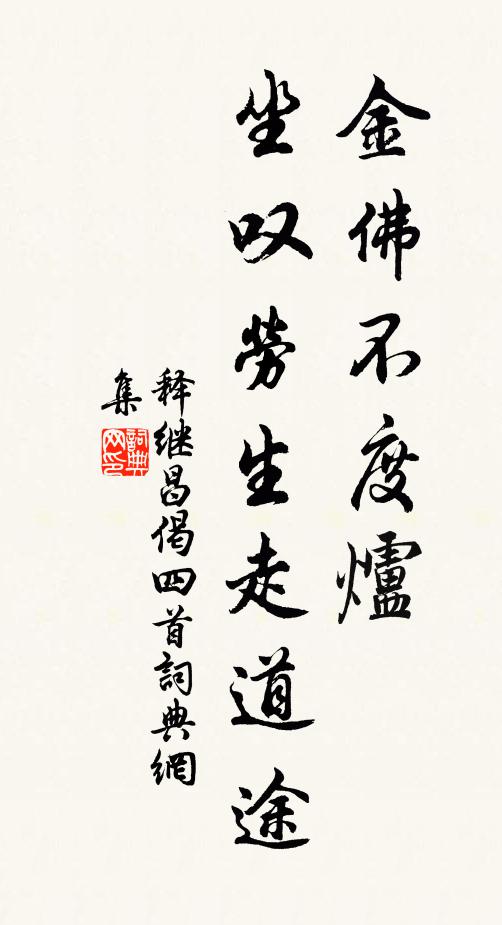 金佛不度爐
坐叹勞生走道途
释继昌偈四首詞典網
集
詞典
网印